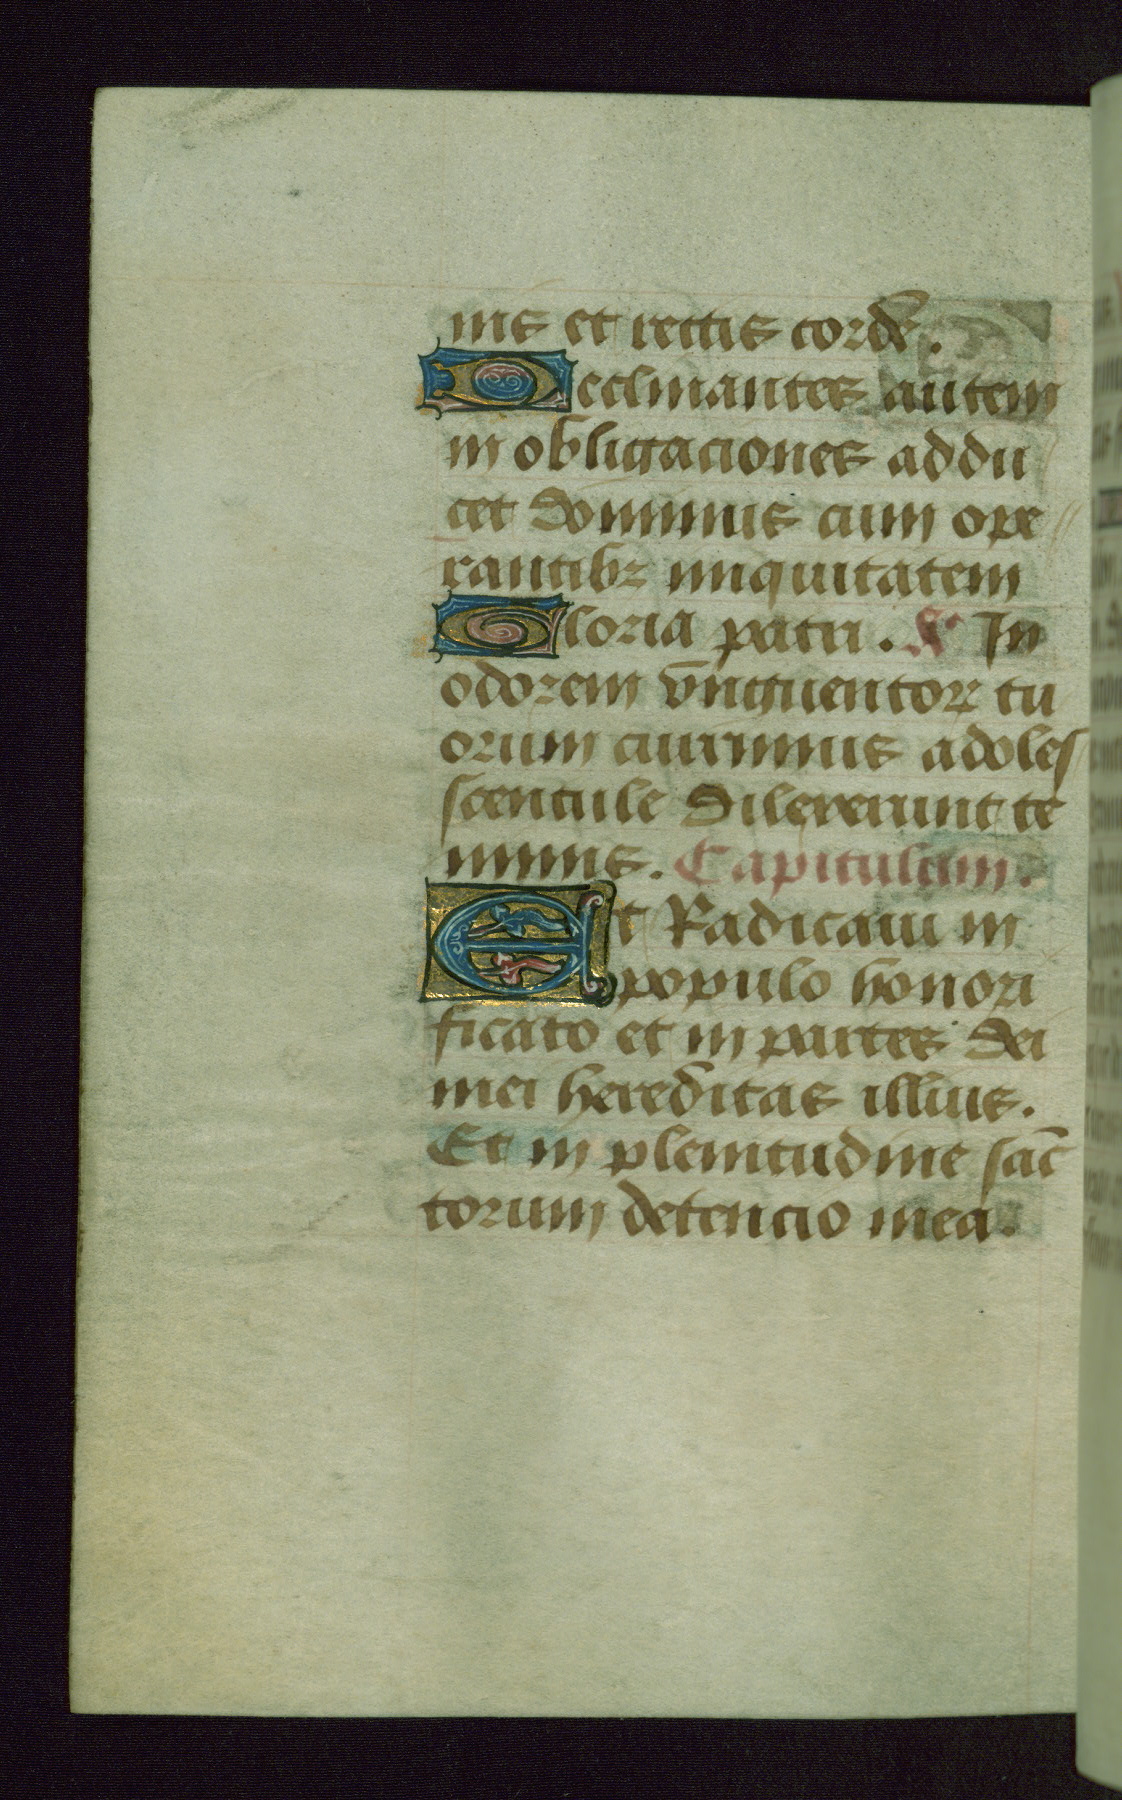 nis et rectis cord̄.
Decclinantes autem
in obligaciones addu
cet Dominus cum ope
rantibꝫ iniquitatem
Gloria patri. A In
odorem vnguentoꝝ tu
orum currimus adoles
scentule Dilexerunt te
nimis. Capitulum.
Et Radicaui in
populo honori
ficato et in partes Dei
mei hereditas illius.
Et in plenitudine sāc
torum detencio mea.